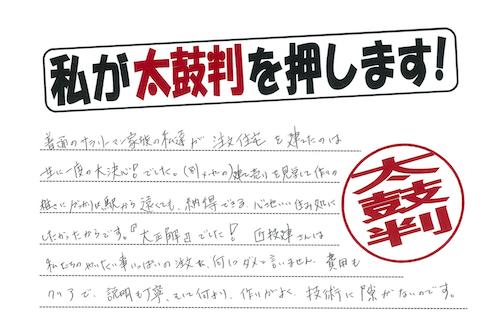 私が太鼓判を押します!
普通のサラリーマン家族の私達が 注文住宅 を建てたのは
共に一度の大決心!でした。(別メーカの)建て売りを見学して作りの
雑さにがっかりし駅から遠くても、納得できる、心地いい住み処に
したかったからです。『大正解』でした! 匠技建さんは
私たちのやりたい事いっぱいの注文を、何1つダメと言いません、費用も
クリアで、説明も丁寧、そして何より、作りがよく、技術に隙がないのです。
太鼓判